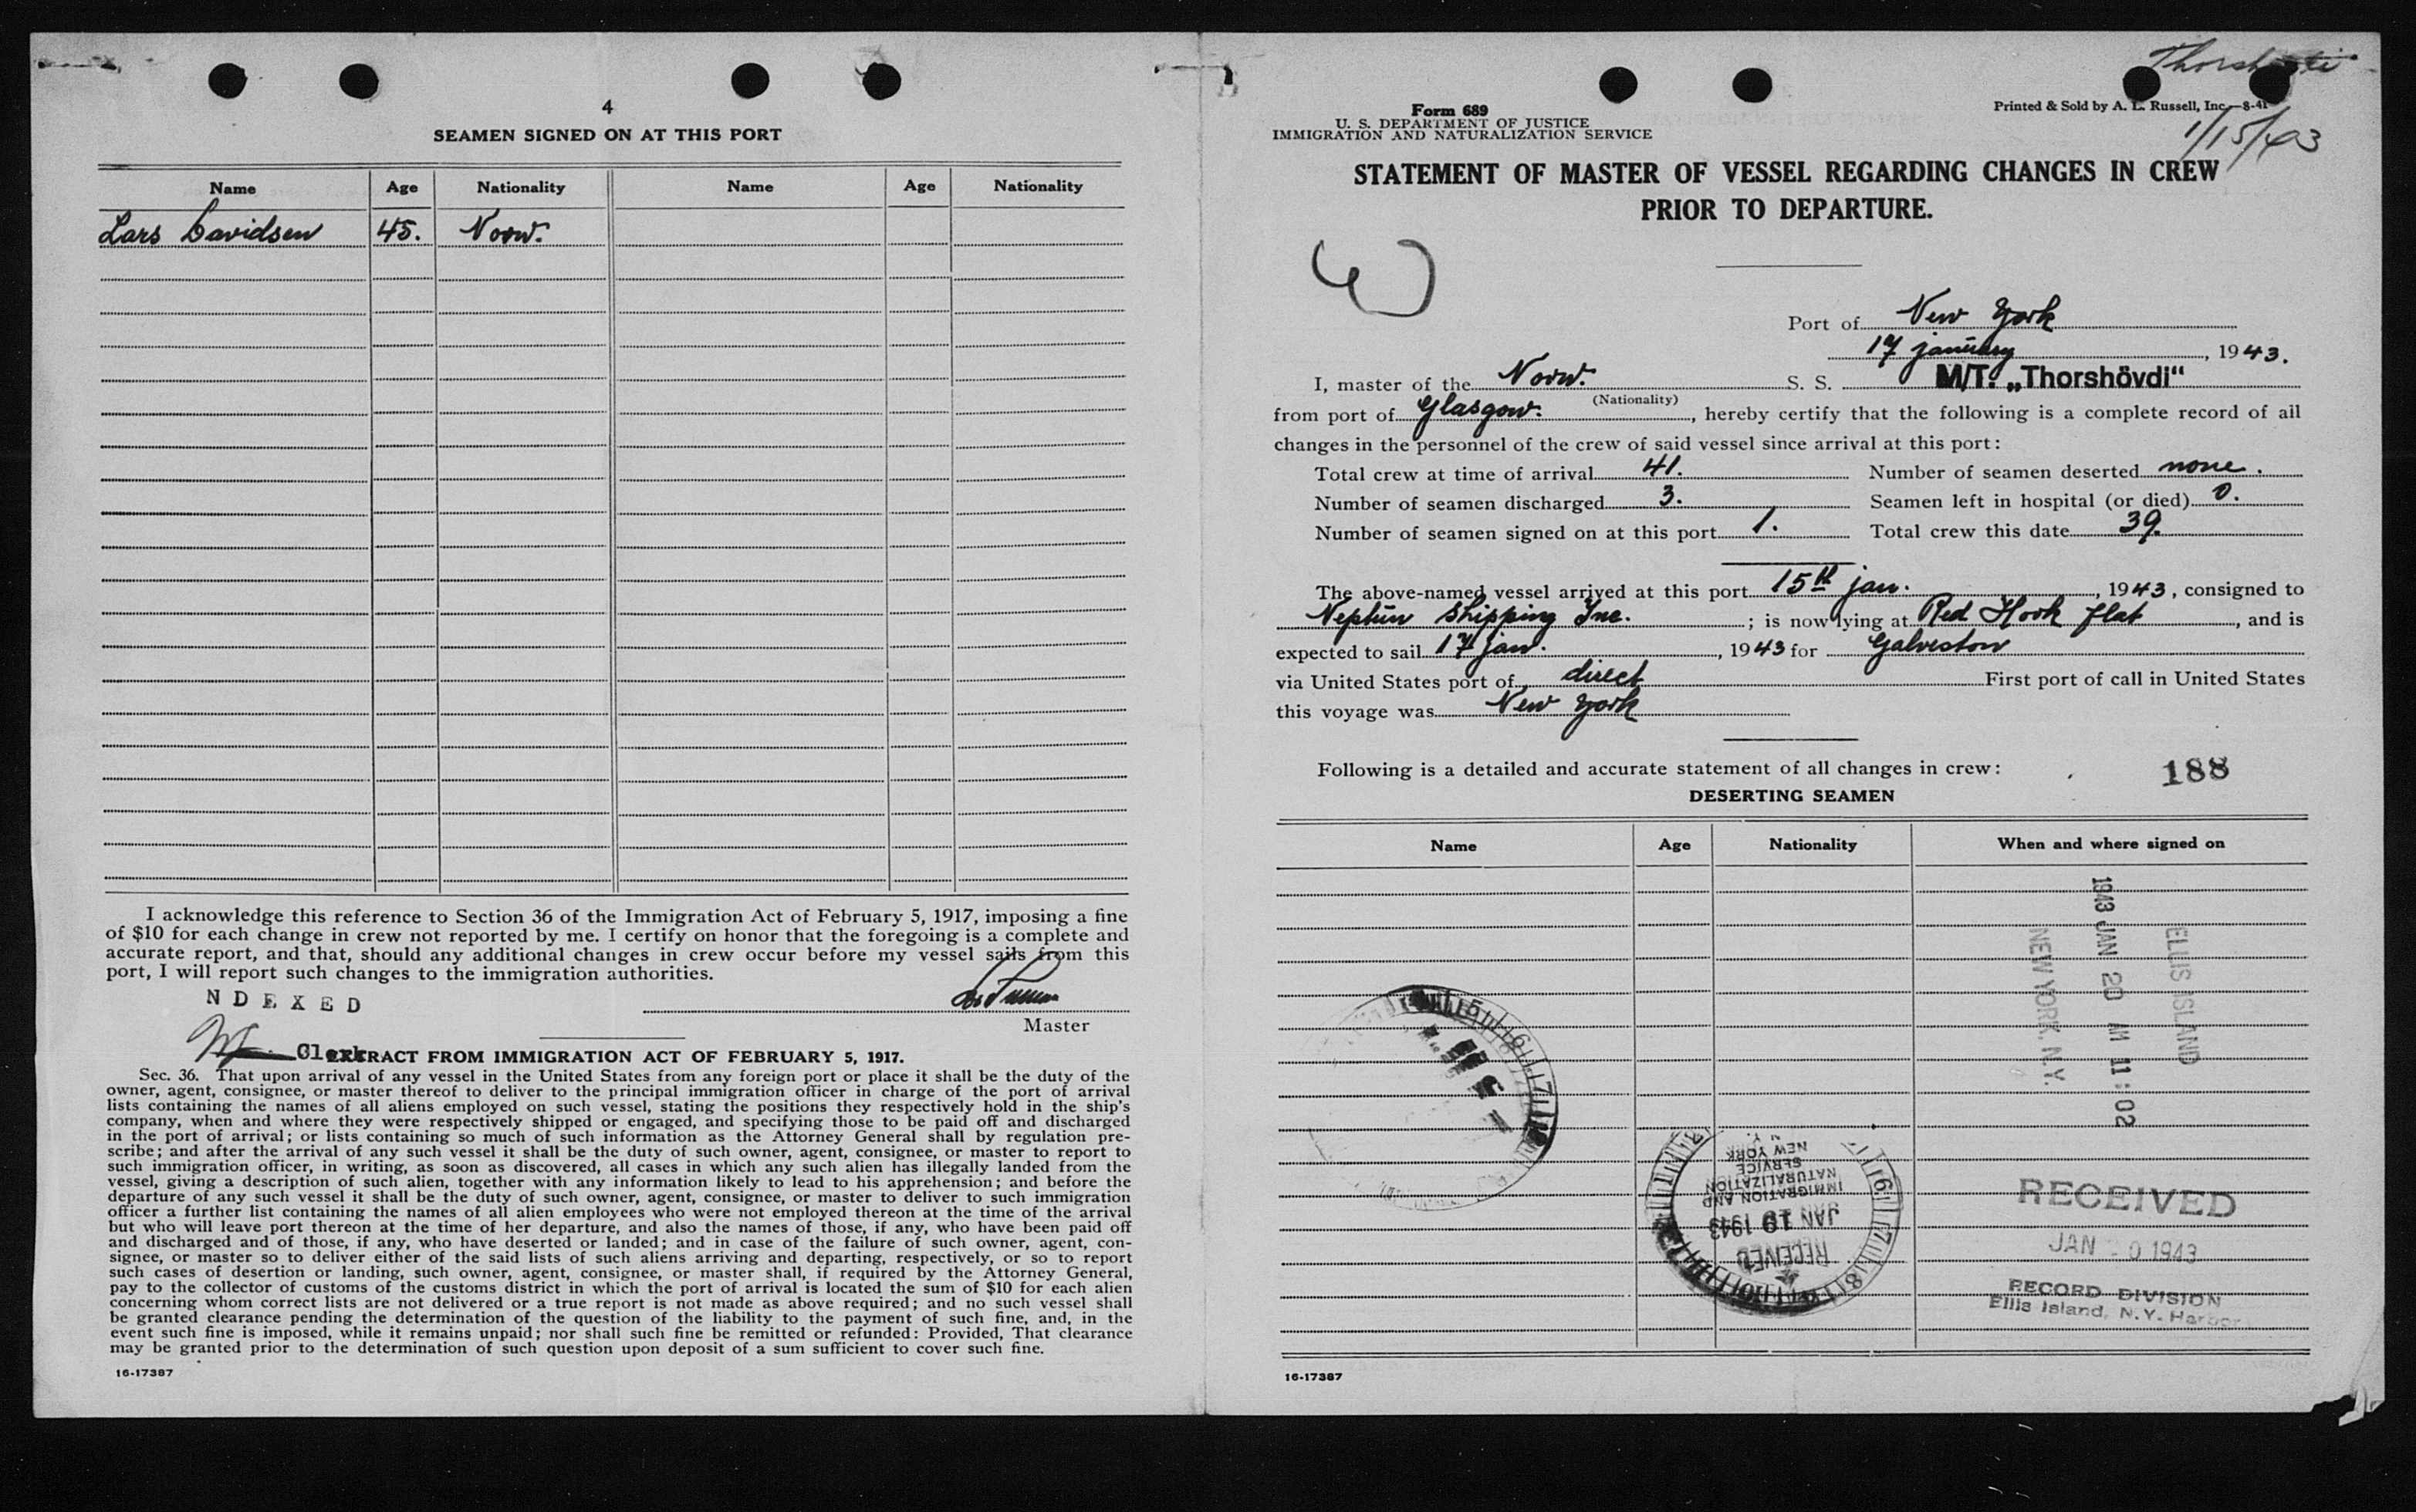 4
SEAMEN SIGNED ON AT THIS PORT
Name Age Nationality Name Age Nationality
Lars Davidsen 45. Norw.
I acknowledge this reference to Section 36 of the Immigration Act of February 5, 1917, imposing a fine
of $10 for each change in crew not reported by me. I certify on honor that the foregoing is a complete and
accurate report, and that, should any additional changes in crew occur before my vessel sails from this
port, I will report such changes to the immigration authorities.
NDEXED
Master
Clerk
EXTRACT FROM IMMIGRATION ACT OF FEBRUARY 5, 1917.
Sec. 36. That upon arrival of any vessel in the United States from any foreign port or place it shall be the duty of the
owner, agent, consignee, or master thereof to deliver to the principal immigration officer in charge of the port of arrival
lists containing the names of all aliens employed on such vessel, stating the positions they respectively hold in the ship's
company, when and where they were respectively shipped or engaged, and specifying those to be paid off and discharged
in the port of arrival; or lists containing so much of such information as the Attorney General shall by regulation pre-
scribe; and after the arrival of any such vessel it shall be the duty of such owner, agent, consignee, or master to report to
such immigration officer, in writing, as soon as discovered, all cases in which any such alien has illegally landed from the
vessel, giving a description of such alien, together with any information likely to lead to his apprehension; and before the
departure of any such vessel it shall be the duty of such owner, agent, consignee, or master to deliver to such immigration
officer a further list containing the names of all alien employees who were not employed thereon at the time of the arrival
but who will leave port thereon at the time of her departure, and also the names of those, if any, who have been paid off
and discharged and of those, if any, who have deserted or landed; and in case of the failure of such owner, agent, con-
signee, or master so to deliver either of the said lists of such aliens arriving and departing, respectively, or so to report
such cases of desertion or landing, such owner, agent, consignee, or master shall, if required by the Attorney General,
pay to the collector of customs of the customs district in which the port of arrival is located the sum of $10 for each alien
concerning whom correct lists are not delivered or a true report is not made as above required; and no such vessel shall
be granted clearance pending the determination of the question of the liability to the payment of such fine, and, in the
event such fine is imposed, while it remains unpaid; nor shall such fine be remitted or refunded: Provided, That clearance
may be granted prior to the determination of such question upon deposit of a sum sufficient to cover such fine.
16-17387
Form 689
U. S. DEPARTMENT OF JUSTICE
IMMIGRATION AND NATURALIZATION SERVICE
Printed & Sold by A. L. Russell, Inc.—8-41
1/15/43
STATEMENT OF MASTER OF VESSEL REGARDING CHANGES IN CREW
PRIOR TO DEPARTURE.
Port of New York
17 january, 1943.
I, master of the Norw. S. S. M/T. „Thorshövdi"
(Nationality)
from port of Glasgow., hereby certify that the following is a complete record of all
changes in the personnel of the crew of said vessel since arrival at this port:
Total crew at time of arrival 41. Number of seamen deserted none.
Number of seamen discharged 3. Seamen left in hospital (or died) 0.
Number of seamen signed on at this port 1. Total crew this date 39.
The above-named vessel arrived at this port 15th jan., 1943, consigned to
Neptun Shipping Inc.; is now lying at Red Hook flat, and is
expected to sail 17 jan., 1943 for Galveston
via United States port of direct First port of call in United States
this voyage was New York
Following is a detailed and accurate statement of all changes in crew: 188
DESERTING SEAMEN
Name Age Nationality When and where signed on
1943 JAN 20 M 11:02
ELLIS ISLAND
NEW YORK, N.Y.
RECEIVED
JAN 19 1943
IMMIGRATION AND
NATURALIZATION
SERVICE
NEW YORK
N. Y.
RECEIVED
JAN 0 1943
RECORD DIVISION
Ellis Island, N.Y. Harbor
16-17387